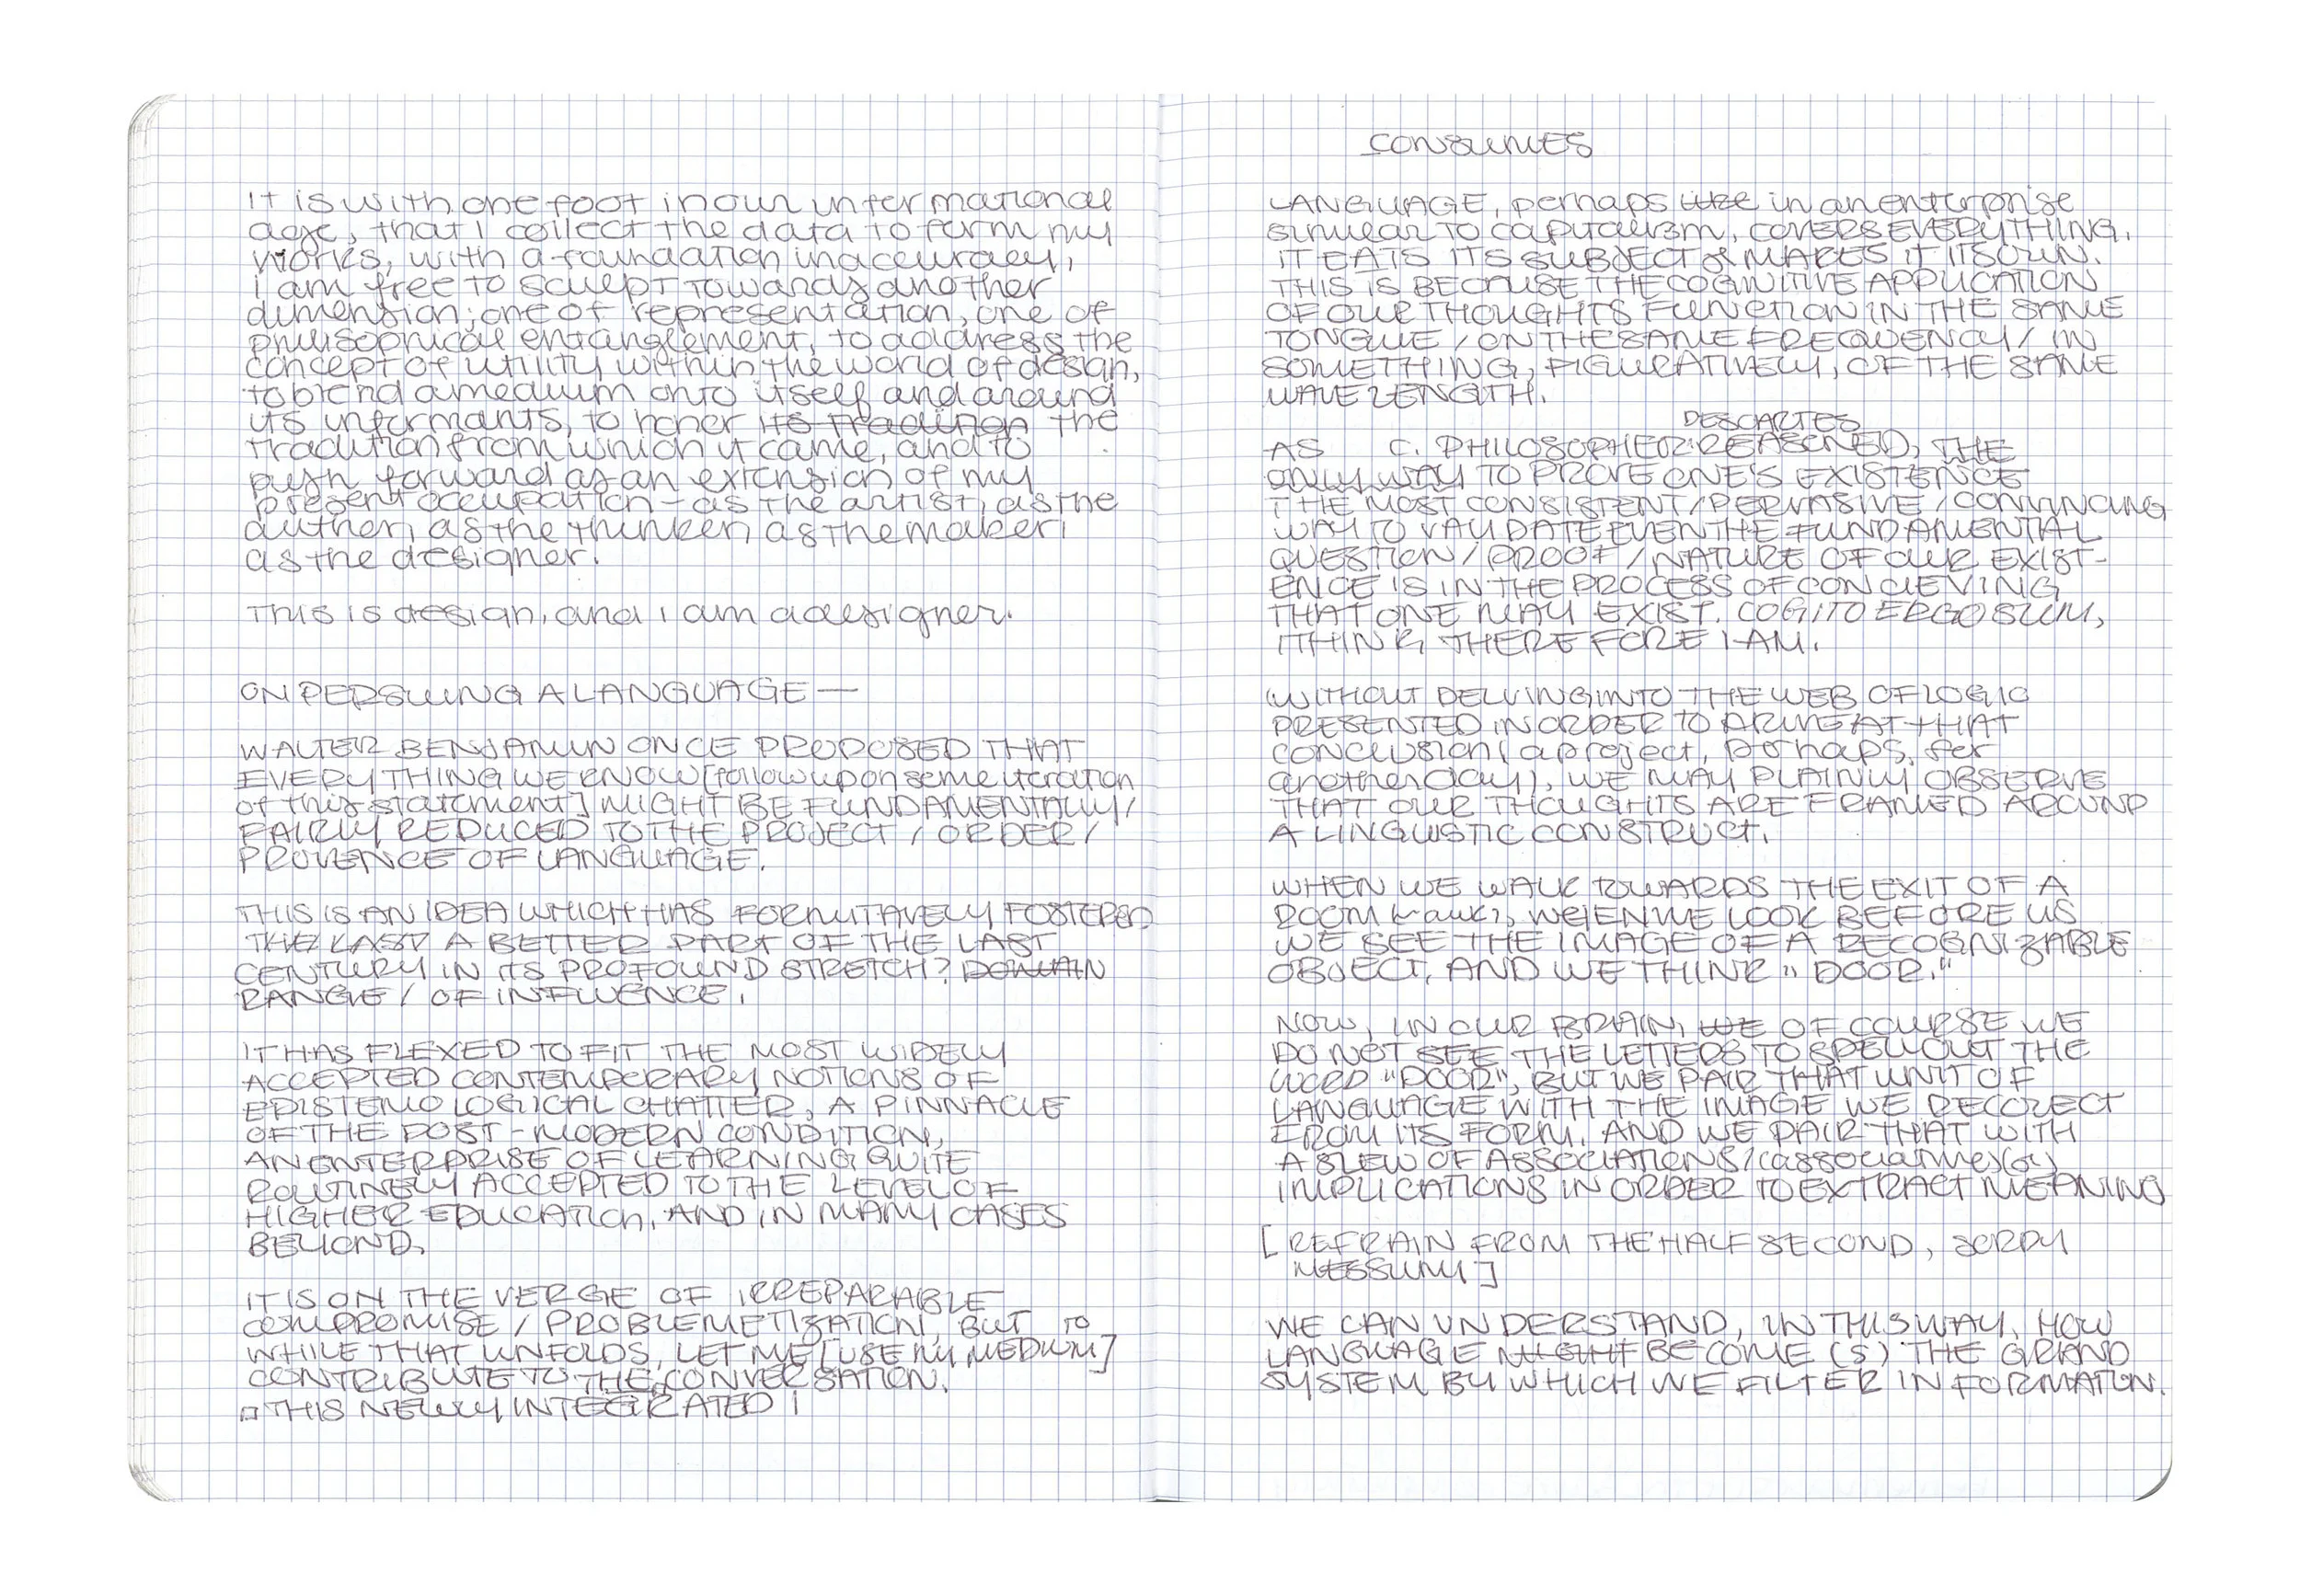 It is with one foot in our informational
age, that I collect the data to form my
works, with a foundation in accuracy,
i am free to sculpt towards another
dimension; one of representation, one of
philisophical entanglement, to address the
concept of utility within the world of design,
to blend a medium onto itself and around
its informants, to honor its tradition the
tradition from which it came, and to
push forward as an extension of my
present occupation – as the artist, as the
author, as the thinker, as the maker,
as the designer.
This is design, and i am a designer.
ON PERSUING A LANGUAGE —
WALTER BENJAMIN ONCE PROPOSED THAT
EVERYTHING WE KNOW [follow up on some iteration
of this statement] MIGHT BE FUNDAMENTALLY/
FAIRLY REDUCED TO THE PROJECT / ORDER/
PROVENCE OF LANGUAGE.
THIS IS AN IDEA WHICH HAS FORMITAVELY FOSTERED
THE LAST A BETTER PART OF THE LAST
CENTURY IN ITS PROFOUND STRETCH? DOMAIN
RANGE / OF INFLUENCE.
IT HAS FLEXED TO FIT THE MOST WIDELY
ACCEPTED CONTEMPORARY NOTIONS OF
EPISTEMOLOGICAL CHATTER, A PINNACLE
OF THE POST-MODERN CONDITION,
AN ENTERPRISE OF LEARNING QUITE
ROUTINELY ACCEPTED TO THE LEVEL OF
HIGHER EDUCATION, AND IN MANY CASES
BEYOND.
IT IS ON THE VERGE OF IRREPARABLE
COMPROMISE / PROBLEMETIZATION, BUT
WHILE THAT UNFOLDS, LET ME [USE MY MEDIUM] TO
CONTRIBUTE TO THE CONVERSATION.
THIS NEWLY INTEGRATED
CONSUMES
LANGUAGE, perhaps like in an enterprise
similar TO capitalism, COVERS EVERYTHING.
IT EATS ITS SUBJECT & MAKES IT ITS OWN.
THIS IS BECAUSE THE COGNITIVE APPLICATION
OF OUR THOUGHTS FUNCTION IN THE SAME
TONGUE / ON THE SAME FREQUENCY / IN
SOMETHING, FIGURATIVELY, OF THE SAME
WAVELENGTH.
DESCARTES
AS C. PHILOSOPHER REASONED, THE
ONLY WAY TO PROVE ONE'S EXISTENCE
THE MOST CONSISTENT / PERVASIVE / CONVINCING
WAY TO VALIDATE EVEN THE FUNDAMENTAL
QUESTION / PROOF / NATURE OF OUR EXIST-
ENCE IS IN THE PROCESS OF CONCIEVING
THAT ONE MAY EXIST. COGITO ERGO SUM,
I THINK, THEREFORE I AM.
WITHOUT DELVING INTO THE WEB OF LOGIC
PRESENTED IN ORDER TO ARIVE AT THAT
conclusion (a project, perhaps, for
another day), WE MAY PLAINLY OBSERVE
THAT OUR THOUGHTS ARE FRAMED AROUND
A LINGUISTIC CONSTRUCT.
WHEN WE WALK TOWARDS THE EXIT OF A
ROOM, WHEN WE LOOK BEFORE US
WE SEE THE IMAGE OF A RECOGNIZABLE
OBJECT, AND WE THINK "DOOR."
NOW, IN OUR BRAIN, WE OF COURSE WE
DO NOT SEE THE LETTERS TO SPELL OUT THE
WORD "DOOR", BUT WE PAIR THAT UNIT OF
LANGUAGE WITH THE IMAGE WE RECOLECT
FROM ITS FORM. AND WE PAIR THAT WITH
A SLEW OF ASSOCIATIONS / (associative)
IMPLICATIONS IN ORDER TO EXTRACT MEANING
[REFRAIN FROM THE HALF SECOND, SORRY
MESSUMY]
WE CAN UNDERSTAND, IN THIS WAY, HOW
LANGUAGE MIGHT BECOME (S) THE GRAND
SYSTEM BY WHICH WE FILTER INFORMATION.